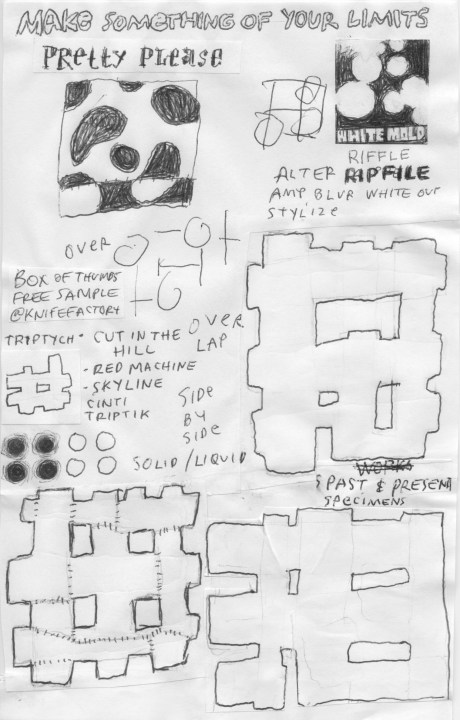 MAKE SOMETHING OF YOUR LIMITS
PRETTY PLEASE
WHITE MOLD
RIFFLE
ALTER RIPFILE
AMP BLUR WHITE OUT
STYLIZE
OVER
BOX OF THUMBS
FREE SAMPLE
@KNIFEFACTORY
OVER
LAP
TRIPTYCH - CUT IN THE
HILL
- RED MACHINE
- SKYLINE
CINTI
TRIPTIK
SIDE
BY
SIDE
SOLID/LIQUID
WORKS
PAST & PRESENT
SPECIMENS